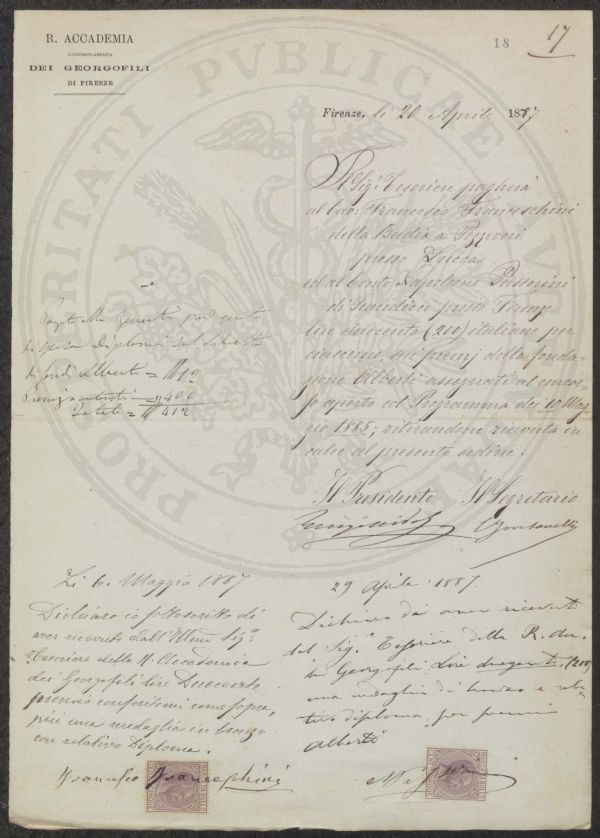 R. ACCADEMIA
DEI GEORGOFILI
DI FIRENZE
18
17
Firenze, li 20 Aprile 1887
Il Sig.r Tesoriere pagherà
al Francesco Franceschini
della Badia a Pozzeveri
presso Lucca
ed al Conte Napoleone Passerini
di presso Firenze
lire duecento (200) italiane per
ciascuno, premj della fonda-
zione Alberti assegnati al concor-
so aperto col Programma dei 10 Mag-
gio 1885; ritirandone ricevuta in
calce al presente ordine.
Il Presidente Il Segretario
di spesa diplomi
di fondi Alberti = 12
= 400
Totale = 412
Li 6. Maggio 1887
Dichiaro io sottoscritto di
aver ricevuto dall'Illmo Sig.r
Tesoriere della R. Accademia
dei Georgofili lire Duecento
premio conferitomi come sopra,
più una medaglia in bronzo
con relativo Diploma.
Francesco Franceschini
29 Aprile 1887.
Dichiaro di aver ricevuto
dal Sig.r Tesoriere della R. Acc.
dei Georgofili Lire duegento (200)
una medaglia di bronzo e rela-
tivo diploma per premio
Alberti
PROSPERITATI PUBLICAE